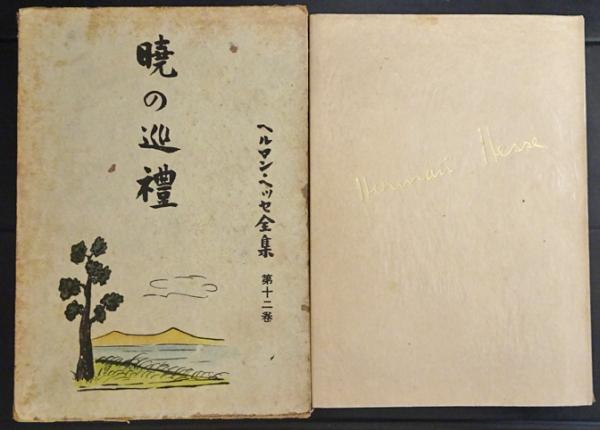 曉の巡禮
ヘルマン・ヘッセ全集 第十二卷
Hermann Hesse